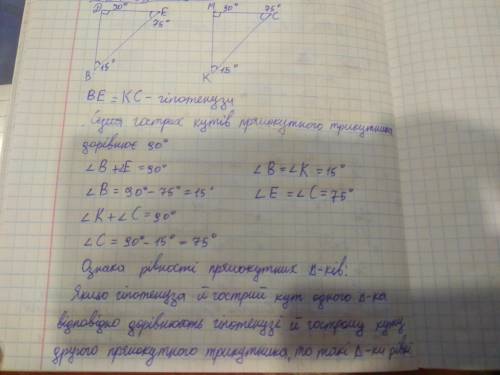 D 90° E M 90° 75° C
75°
B 15° K 15°
BE = KC - гіпотенузи
Сума гострих кутів прямокутного трикутника
дорівнює 90°
∠B + ∠E = 90° ∠B = ∠K = 15°
∠B = 90° - 75° = 15° ∠E = ∠C = 75°
∠K + ∠C = 90°
∠C = 90° - 15° = 75°
Ознака рівності прямокутних Δ-ків:
Якщо гіпотенуза й гострий кут одного Δ-ка
відповідно дорівнюють гіпотенузі й гострому куту
другого прямокутного трикутника, то такі Δ-ки рівні